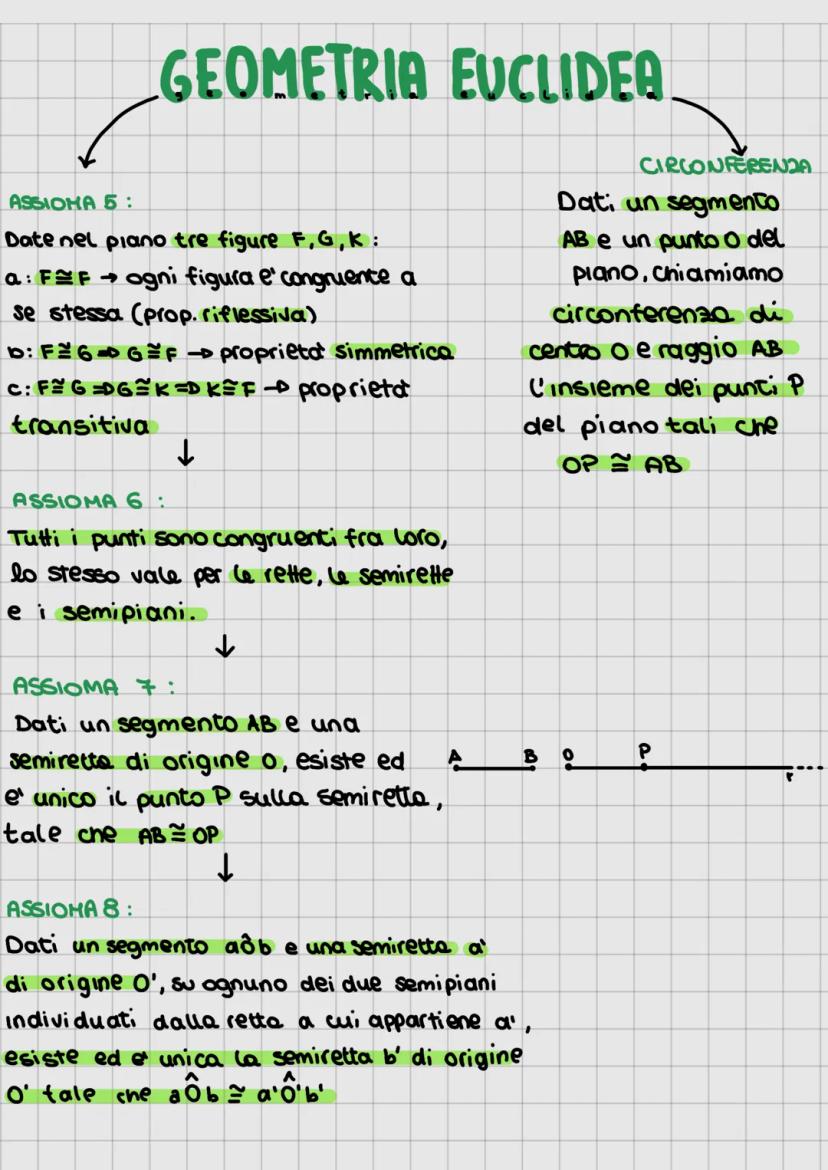 GEOMETRIA EUCLIDEA
geometria euclidea
ASSIOMA 5:
Date nel piano tre figure F, G, K:
a: F≅F → ogni figura e' congruente a
se stessa (prop. riflessiva)
b: F≅G ⇒ G≅F → proprietà simmetrica
c: F≅G ⇒ G≅K ⇒ K≅F → proprietà
transitiva
↓
ASSIOMA 6 :
Tutti i punti sono congruenti fra loro,
lo stesso vale per le rette, le semirette
e i semipiani.
↓
ASSIOMA 7 :
Dati un segmento AB e una
semiretta di origine O, esiste ed
e' unico il punto P sulla semiretta,
tale che AB≅OP
↓
ASSIOMA 8:
Dati un segmento aôb e una semiretta a'
di origine O', su ognuno dei due semipiani
individuati dalla retta a cui appartiene a',
esiste ed e' unica la semiretta b' di origine
O' tale che aÔb ≅ a'Ô'b'
CIRCONFERENZA
Dati un segmento
AB e un punto O del
piano, chiamiamo
circonferenza di
centro O e raggio AB
l'insieme dei punti P
del piano tali che
OP ≅ AB
A B O P
r